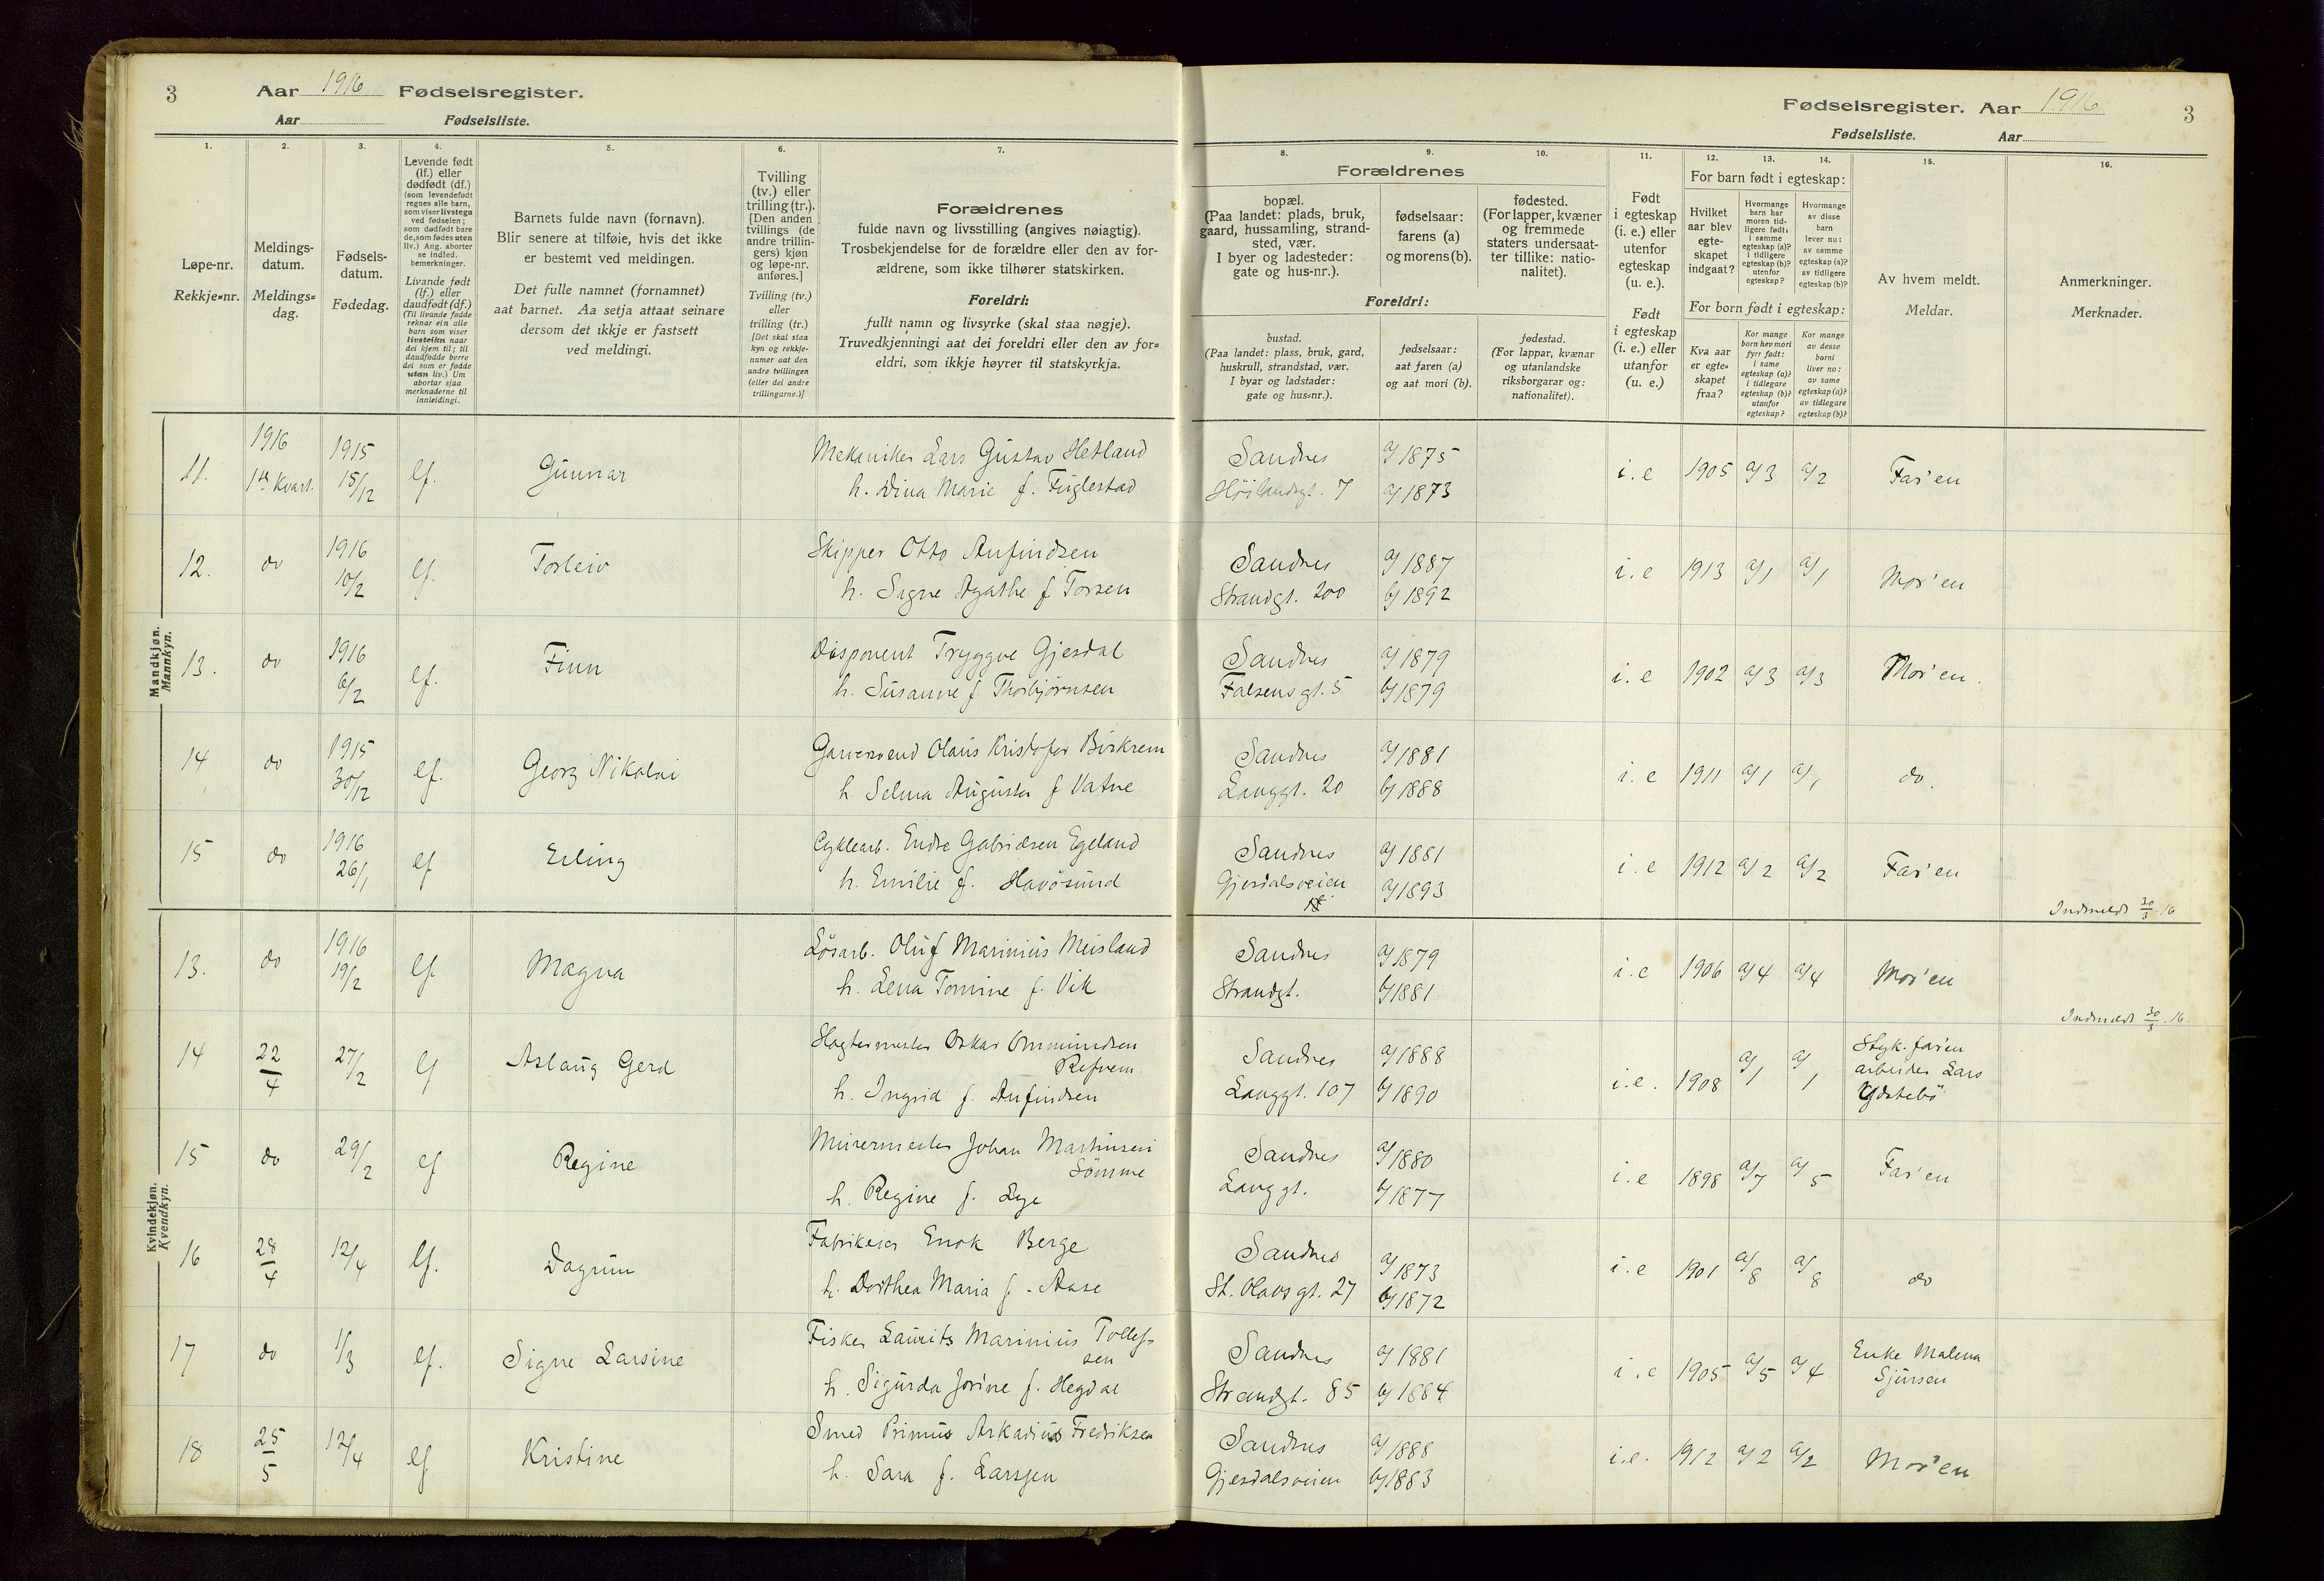 3 Aar 1916 Fødselsregister.
Aar Fødselsliste.
Fødselsregister. Aar 1916 3
Fødselsliste. Aar
1.
Løpe-nr.
Rekkje-nr.
2.
Meldings-
datum.
Meldings-
dag.
3.
Fødsels-
datum.
Fødedag.
4.
Levende født
(lf.) eller
dødfødt (df.)
(som levendefødt
regnes alle barn,
som viser livstegn
ved fødselen;
som dødfødt bare
de, som fødes uten
liv.) Ang. aborter
se indled.
bemerkninger.
Livande født
(lf.) eller
daudfødt (df.)
(Til livande fødde
reknar ein alle
born som viser
livsteikn naar
dei kjem til; til
daudfødde berre
dei som er fødde
utan liv.) Um
abortar sjaa
merknaderne til
innleidingi.
5.
Barnets fulde navn (fornavn).
Blir senere at tilføie, hvis det ikke
er bestemt ved meldingen.
Det fulle namnet (fornamnet)
aat barnet. Aa setja attaat seinare
dersom det ikkje er fastsett
ved meldingi.
6.
Tvilling
(tv.) eller
trilling (tr.).
[Den anden
tvillings (de
andre trillin-
gers) kjøn
og løpe-nr.
anføres.]
Tvilling (tv.)
eller
trilling (tr.)
[Det skal staa
kyn og rekkje-
numer aat den
andre tvillingen
(eller dei andre
trillingarne.)]
7.
Forældrenes
fulde navn og livsstilling (angives nøiagtig).
Trosbekjendelse for de forældre eller den av for-
ældrene, som ikke tilhører statskirken.
Foreldri:
fullt namn og livsyrke (skal staa nøgje).
Truvedkjenningi aat dei foreldri eller den av for-
eldri, som ikkje høyrer til statskyrkja.
Forældrenes
8.
bopæl.
(Paa landet: plads, bruk,
gaard, hussamling, strand-
sted, vær.
I byer og ladesteder:
gate og hus-nr.).
9.
fødselsaar:
farens (a)
og morens (b).
10.
fødested.
(For lapper, kvæner
og fremmede
staters undersaat-
ter tillike: natio-
nalitet).
Foreldri:
bustad.
(Paa landet: plass, bruk, gard,
huskrull, strandstad, vær.
I byar og ladstader:
gate og hus-nr.).
fødselsaar:
aat faren (a)
og aat mori (b).
fødestad.
(For lappar, kvænar
og utanlandske
riksborgarar og:
nationalitet).
11.
Født
i egteskap
(i. e.) eller
utenfor
egteskap
(u. e.).
Født
i egteskap
(i. e.) eller
utanfor
(u. e.)
For barn født i egteskap:
12.
Hvilket
aar blev
egte-
skapet
indgaat?
13.
Hvormange
barn har
moren tid-
ligere født:
i samme
egteskap (a)?
i tidligere
egteskap (b)?
utenfor
egteskap?
14.
Hvormange
av disse
barn
lever nu:
av samme
egteskap (a)?
av tidligere
egteskap (b)?
For born født i egteskap:
Kva aar
er egte-
skapet
fraa?
Kor mange
born hev mori
fyrr født:
i same
egteskap (a)?
i tidlegare
egteskap (b)?
utanfor
egteskap?
Kor mange
av desse
borni
liver no:
av same
egteskap (a)?
av tidlegare
egteskap (b)?
15.
Av hvem meldt.
Meldar.
16.
Anmerkninger.
Merknader.
Mandkjøn.
Mannkyn.
11. 1916 1ste Kvart. 1915 15/12 lf. Gunnar Mekaniker Lars Gustav Hetland Sandnes a/ 1875 i. e 1905 a/3 a/2 Far'en
h. Dina Marie f. Fuglestad Høilandsgt. 7 a/ 1873
12. do 1916 10/2 lf. Torleiv Skipper Otto Anfindsen Sandnes a/ 1887 i. e 1913 a/1 a/1 Mor'en
h. Signe Agathe f Torsen Strandgt. 200 b/ 1892
13. do 1916 6/2 lf. Finn Disponent Tryggve Gjesdal Sandnes a/ 1879 i. e 1902 a/3 a/3 Mor'en.
h. Susanne f Thorbjørnsen Falsensgt. 5 b/ 1879
14 do 1915 30/12 lf. Georg Nikolai Garversvend Olaus Kristofer Birkrem Sandnes a/ 1881 i. e 1911 a/1 a/1 do.
h Selma Augusta f Vatne Langgt. 20 b/ 1888
15 do 1916 26/1 lf Erling Cyklearb. Endre Gabrielsen Egeland Sandnes a/ 1881 i. e 1912 a/2 a/2 Far'en
h. Emilie f. Havösund Gjesdalsveien a/ 1893
Indmeldt 30/3. 16
Kvindekjøn.
Kvendkyn.
13. do 1916 19/2 lf. Magna Lösarb. Oluf Marinius Meisland Sandnes a/ 1879 i. e 1906 a/4 a/4 Mor'en
h. Lena Tomine f. Vik Strandgt. b/ 1881
Indmeldt 30/3. 16.
14 22/4 27/2 lf Aslaug Gerd Slagtermester Oskar Ommundsen
Refvem Sandnes a/ 1888 i. e. 1908 a/1 a/1 Styk. far'en
arbeider Lars
Ydstebö
h. Ingrid f. Anfindsen Langgt. 107 b/ 1890
15 do 29/2 lf Regine Murermester Johan Martinsen
Sömme Sandnes a/ 1880 i. e 1898 a/7 a/5 Far'en
h. Regine f. Lye Langgt. b/ 1877
16 28/4 12/4 lf. Dagrun Fabrikeier Enok Berge Sandnes a/ 1873 i. e 1901 a/8 a/8 do
h. Dorthea Maria f. Aase St. Olavsgt. 27 b/ 1872
17 do 1/3 lf. Signe Larsine Fisker Laurits Marinius Tollef-
sen Sandnes a/ 1881 i. e 1905 a/5 a/4 Enke Malena
Sjursen
h. Sigurda Jorine f. Hegdal Strandgt. 85 b/ 1884
18 25/5 12/4 lf Kristine Smed Primus Arkadius Fredriksen Sandnes a/ 1888 i. e. 1912 a/2 a/2 Mor'en
h. Sara f. Larsen Gjesdalsveien b/ 1883